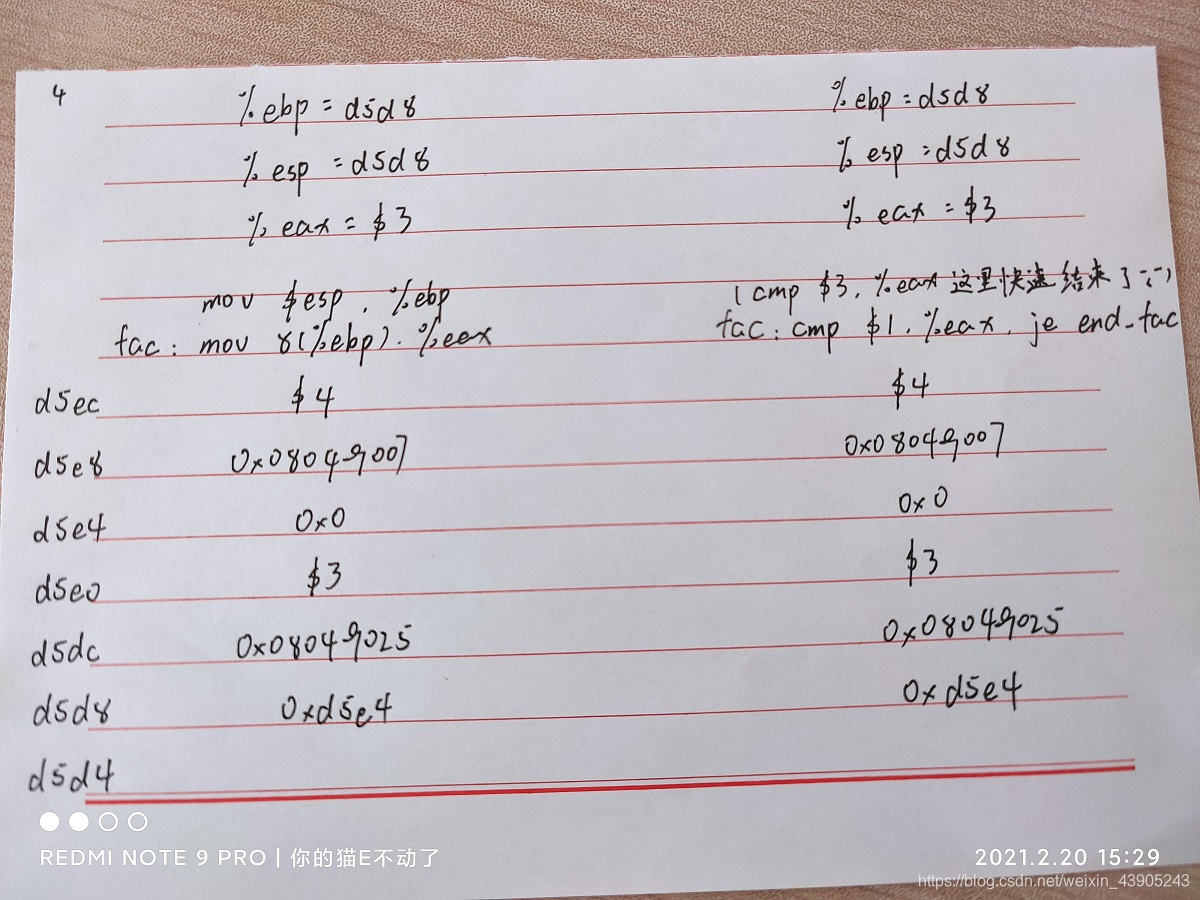 4
%ebp = d5d8 %ebp = d5d8
%esp = d5d8 %esp = d5d8
%eax = $3 %eax = $3
mov $esp, %ebp (cmp $3, %eax 这里快速结束了
fac: mov 8(%ebp), %eax fac: cmp $1, %eax, je end_fac
d5ec $4 $4
d5e8 0x08049007 0x08049007
d5e4 0x0 0x0
d5e0 $3 $3
d5dc 0x08049025 0x08049025
d5d8 0xd5e4 0xd5e4
d5d4
REDMI NOTE 9 PRO | 你的猫E不动了 2021.2.20 15:29
https://blog.csdn.net/weixin_43905243